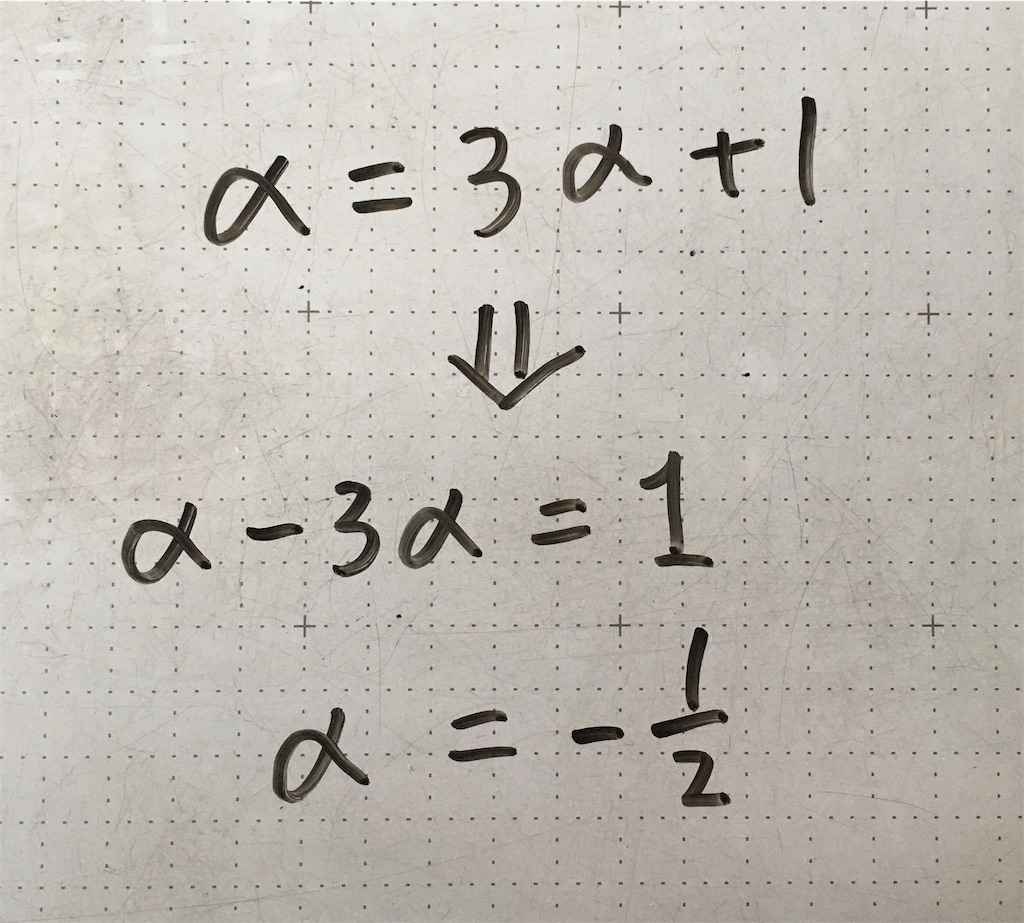 α = 3α + 1
⇓
α - 3α = 1
α = - 1/2